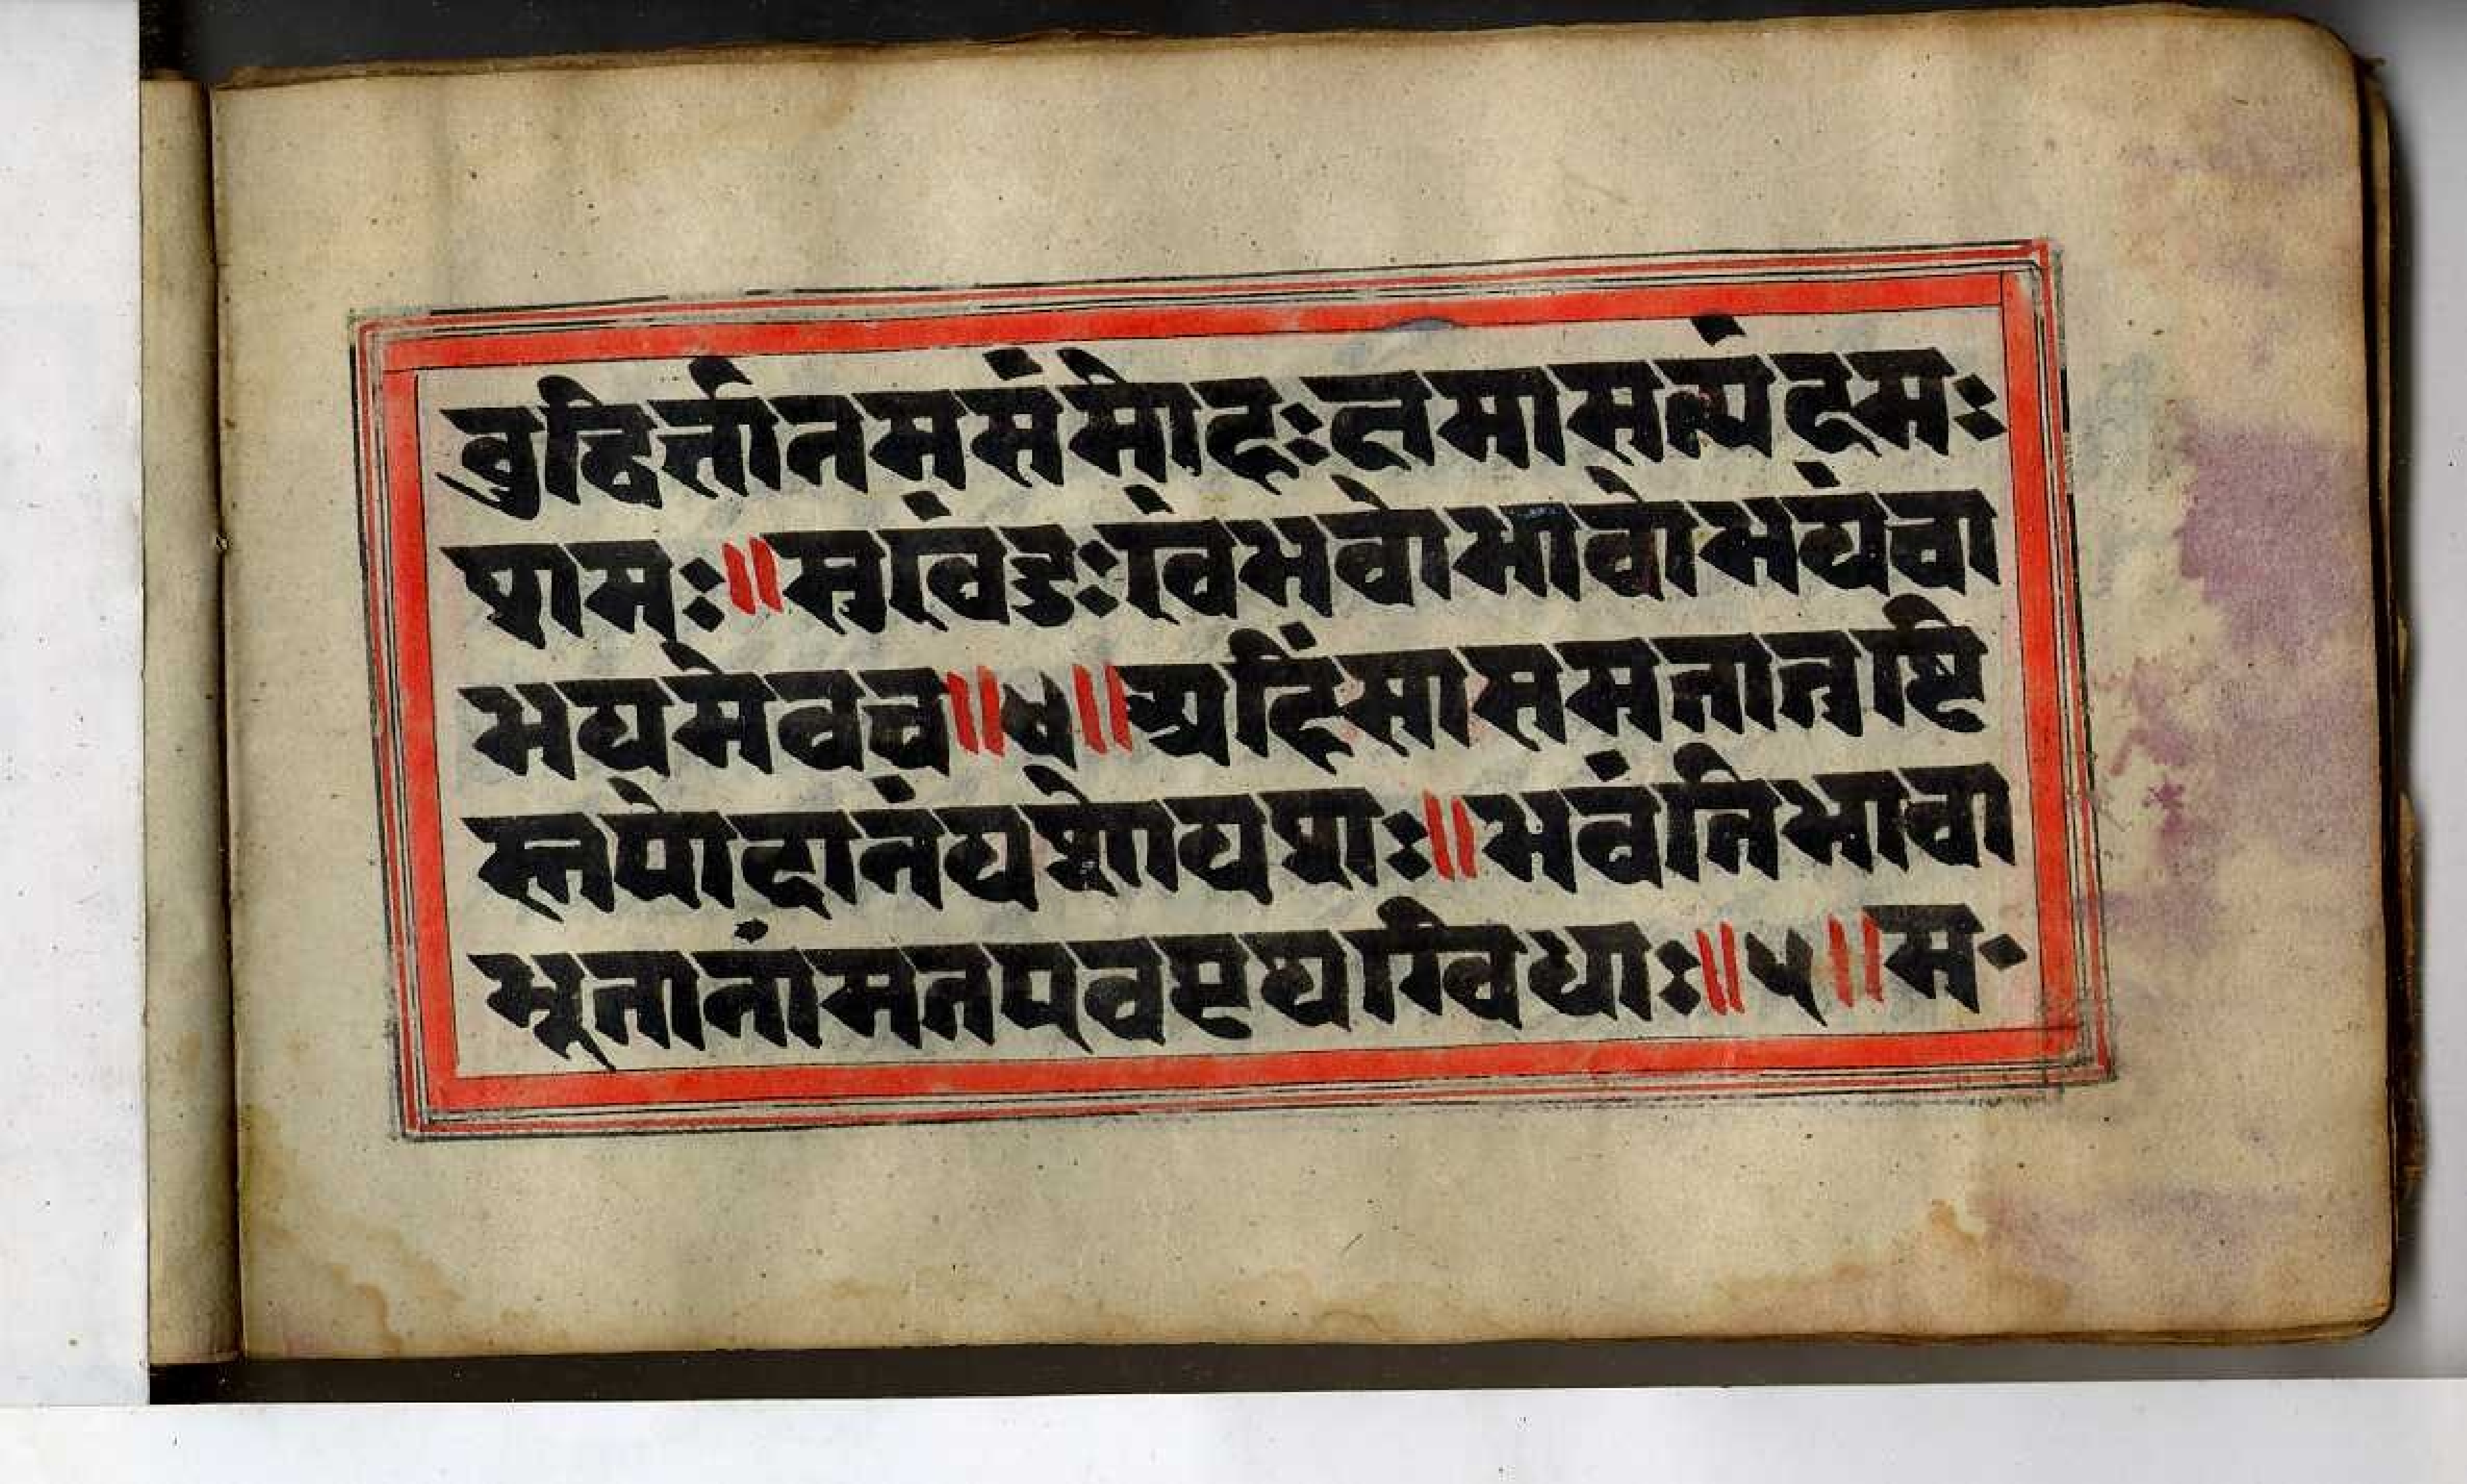 बुद्धिर्ज्ञानमसंमोहःक्षमासत्यंदमः
शमः॥सुखंदुःखंभवोभावोभयंचा
भयमेवच॥४॥अहिंसासमतातुष्टि
स्तपोदानंयशोयशः॥भवंतिभावा
भूतानांमतएवपृथग्विधाः॥५॥म॰